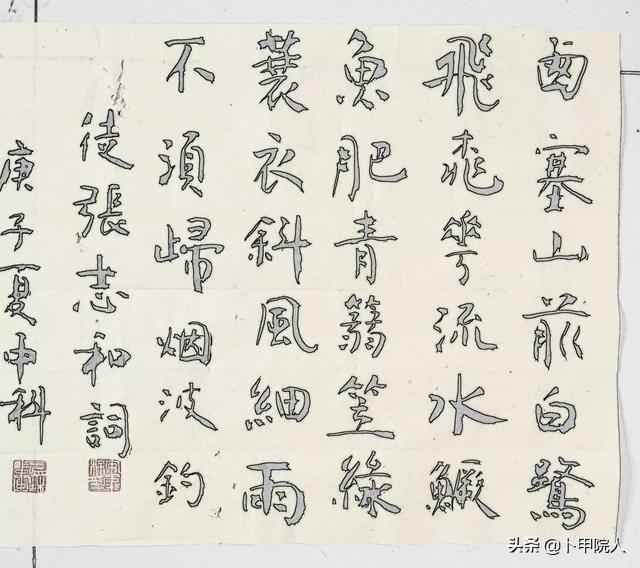 西塞山前白鷺
飛桃花流水鱖
魚肥青蒻笠綠
蓑衣斜風細雨
不須歸烟波釣
徒張志和詞
庚子夏申科
头条 @卜甲院人